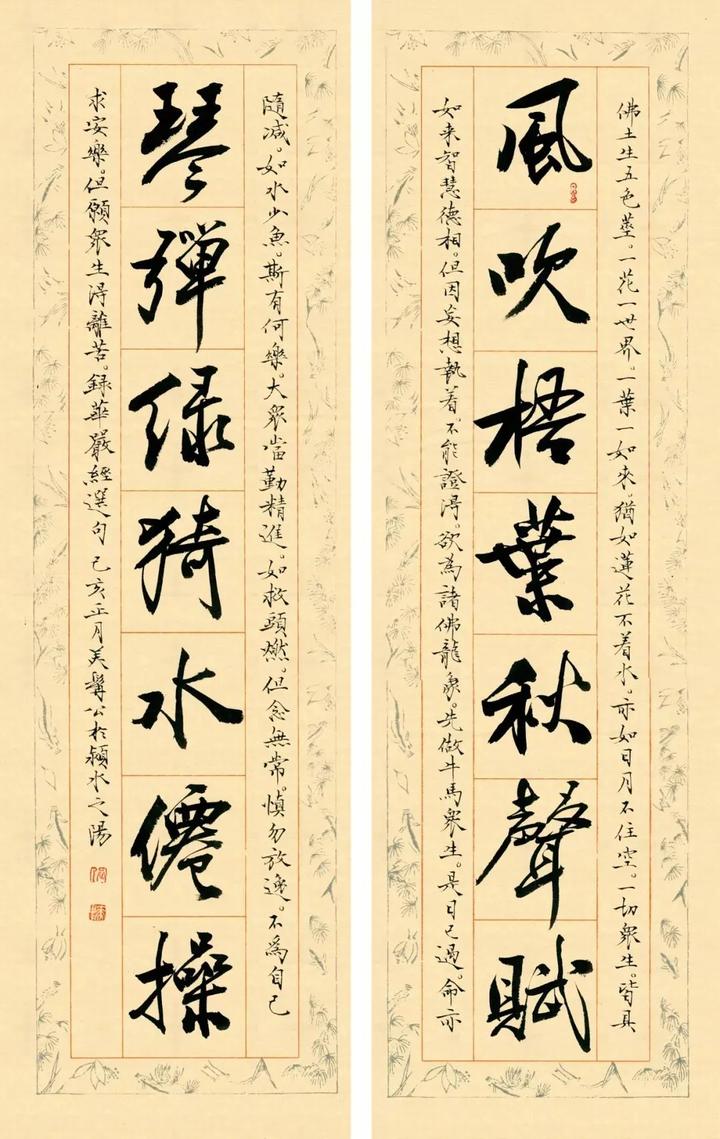 佛土生五色莖。一花一世界。一葉一如來。猶如蓮花不着水。亦如日月不住空。一切衆生。皆具
風吹梧葉秋聲賦
如来智慧德相。但因妄想執着。不能證淂。欲為諸佛龍象。先做牛馬衆生。是日已過。命亦
隨减。如水少魚。斯有何樂。大衆當勤精進。如救頭燃。但念無常。慎勿放逸。不為自己
琴彈绿猗水僊操
求安樂。但願衆生淂離苦。録華嚴經選句 己亥正月美髯公於潁水之陽